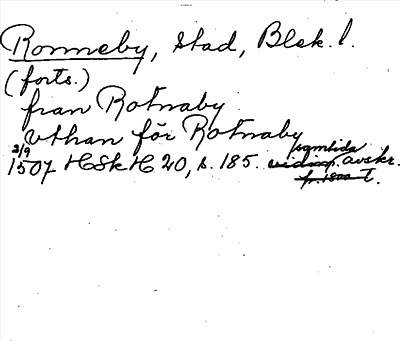 Ronneby, stad, Blek. l.
(forts.)
fran Rotnaby
vthan för Rotnaby
2/9 1507 HSkH 20, s. 185. samtida avskr.